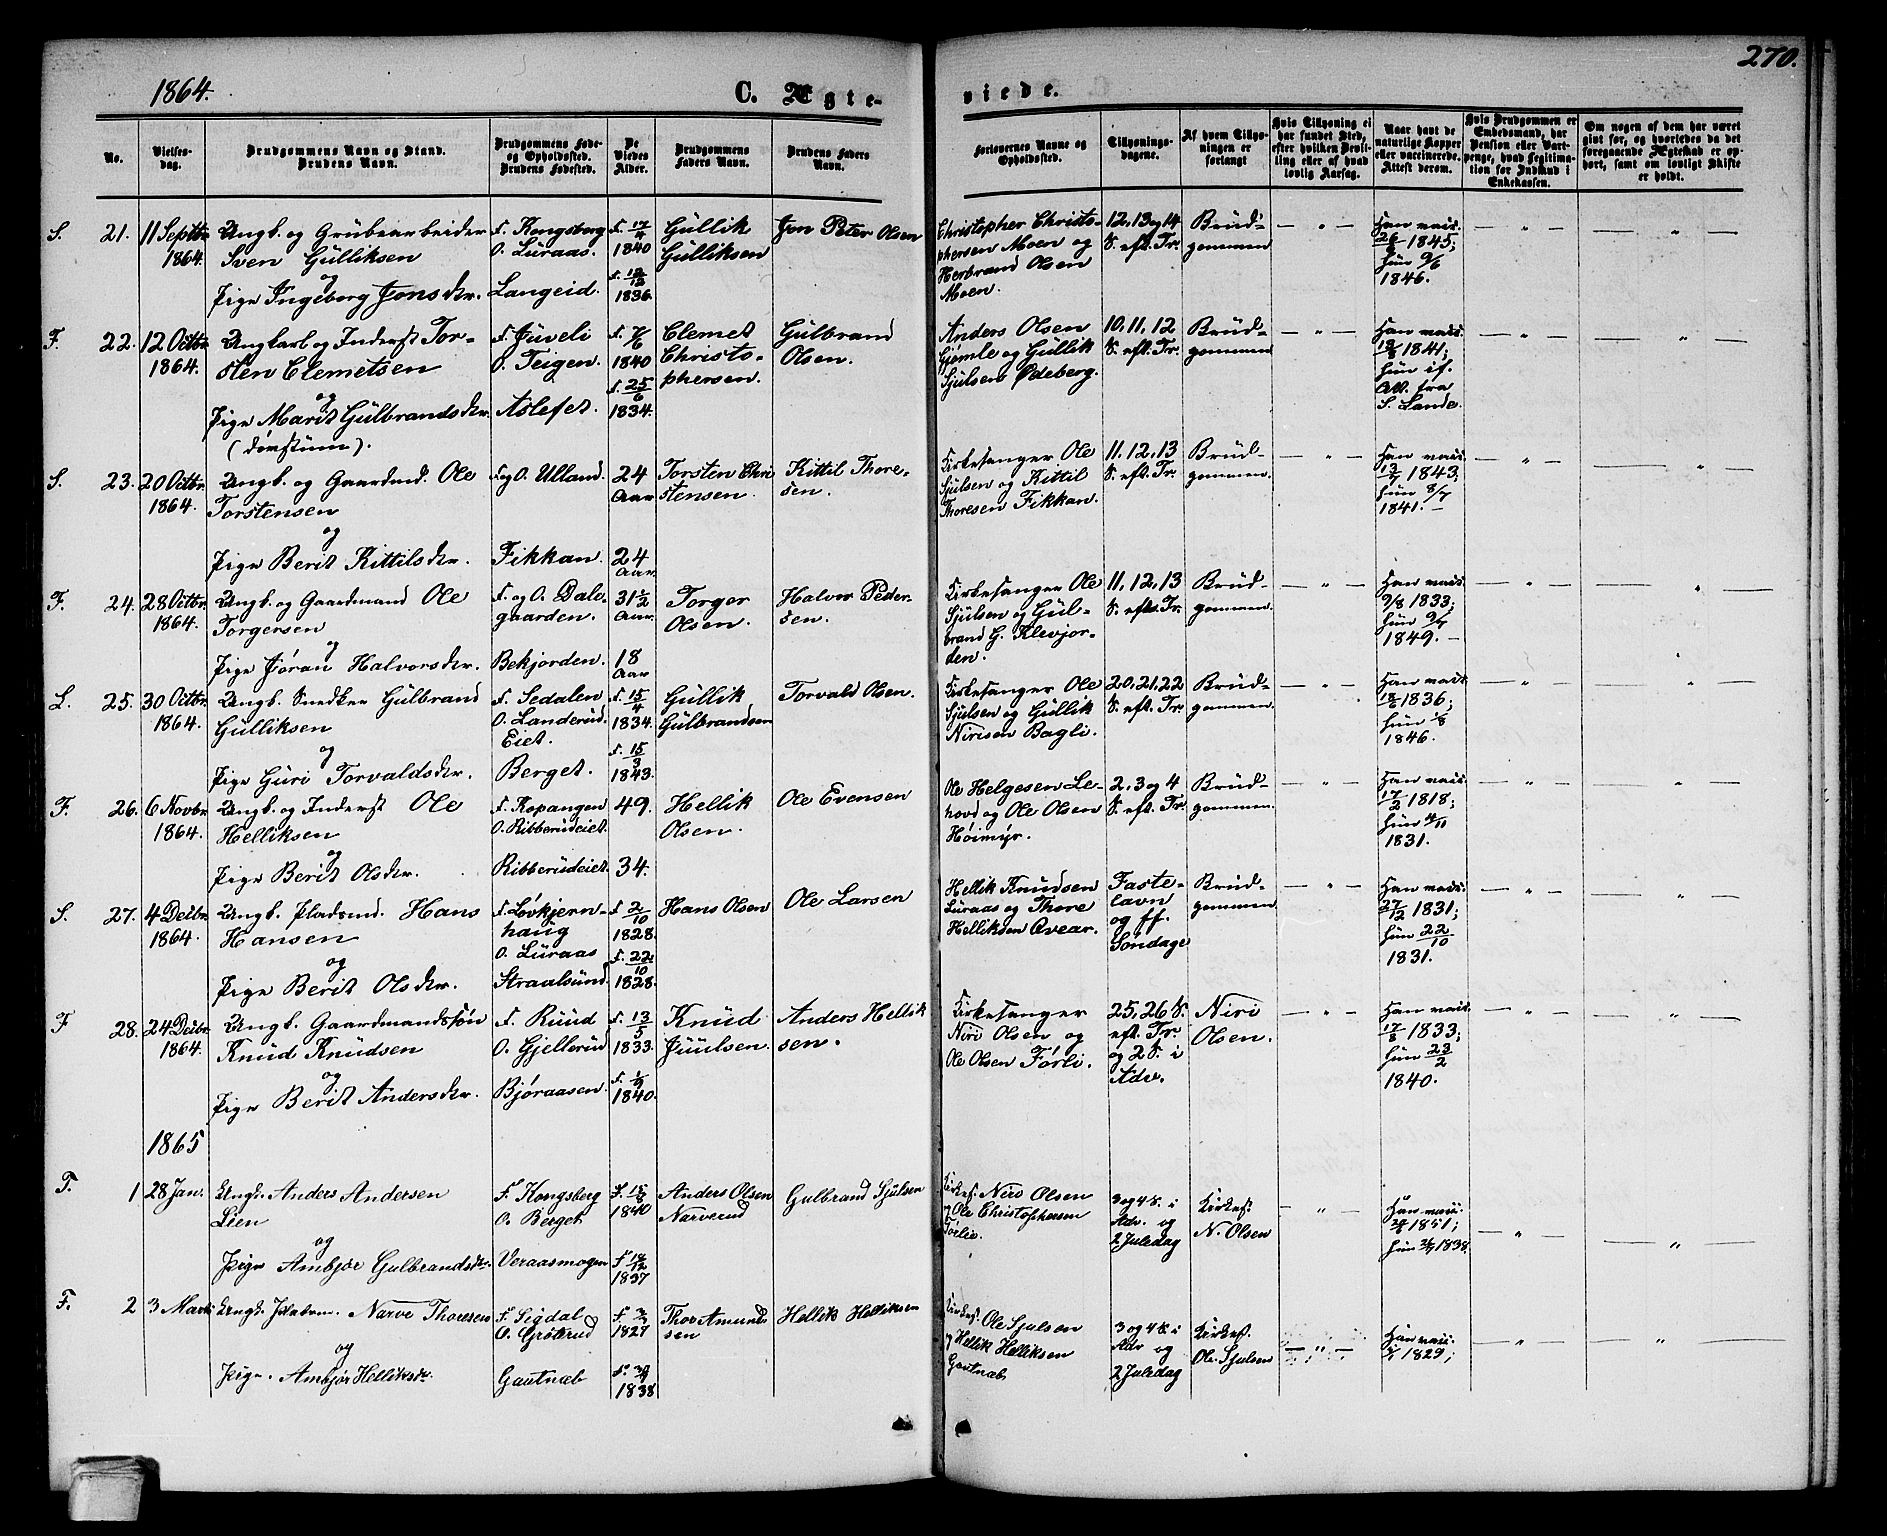 1864.
C. Ægte-
viede.
270.
No.
Vielses-
dag.
Brudgommens Navn og Stand.
Brudens Navn.
Brudgommens Føde-
og Opholdssted.
Brudens Fødested.
De
Viedes
Alder.
Brudgommens
Faders Navn.
Brudens Faders
Navn.
Forlovernes Navne og
Opholdssted.
Tillysnings-
dagene.
Af hvem Tillys-
ningen er
forlangt
Hvis Tillysning ei
har fundet Sted,
efter hvilken Bevil-
ling eller af hvad
lovlig Aarsag.
Naar havt de
naturlige Kopper
eller vaccinerede.
Attest derom.
Hvis Brudgommen er
Embedsmand, har
Pension eller Vart-
penge, hvad Legitima-
tion for Indskud i
Enkekassen.
Om nogen af dem har været
gift før, og hvorledes da det
foregaaende Ægteskab er op-
hørt, samt om lovligt Skifte
er holdt.
S. 21. 11 Septbr. 1864.
Ungk. og Grubearbeider
Sven Gulliksen
og
Pige Ingeborg Jonsdtr.
F. Kongsberg
O. Luraas.
Langeid.
F. 17/4
1840
F. 12/12
1836.
Gullik
Gulliksen
Jon Peter Olsen
Christopher Christo-
phersen Moen og
Herbrand Olsen
Moen.
12, 13 og 14
S. eft. Tr.
Brud-
gommen
Han vacc.
26/6 1845;
hun 9/6
1846.
F. 22. 12 Octbr. 1864.
Ungkarl og Inderst Tor-
sten Clemetsen
og
Pige Marit Gulbrandsdtr.
(døvstum).
F. Juveli
O. Teigen.
Aslefet.
1840
F. 25/6
1834.
Clemet
Christo-
phersen.
Gulbrand
Olsen.
Anders Olsen
Gjømle og Gullik
Sjulsens Ødeberg.
10, 11, 12
S. eft. Tr.
Brud-
gommen
Han vacc.
13/8 1841;
hun if.
Att. fra
S. Lande.
S. 23. 20 Octbr. 1864.
Ungk. og Gaardmd. Ole
Torstensen
og
Pige Berit Kittilsdtr.
F. og O. Ulland.
Fikkan.
24
Aar
24
Aar
Torsten Chri-
stensen.
Kittil Thore-
sen.
Kirkesanger Ole
Sjulsen og Kittil
Thoresen Fikkan.
11, 12, 13
S. eft. Tr.
Brud-
gommen.
Han vacc.
13/7 1843;
hun 8/7
1841.
F. 24. 28 Octbr. 1864.
Ungk. og Gaardmand Ole
Torgersen
og
Pige Jøran Halvorsdtr.
F. og O. Dale-
gaarden.
Bekjorden.
31 1/2
Aar.
18
Aar
Torger
Olsen.
Halvor Peder-
sen.
Kirkesanger Ole
Sjulsen og Gul-
brand G. Klevjor-
den.
11, 12, 13
S. eft. Tr.
Brud-
gommen.
Han vacc.
9/8 1833;
hun 9/7
1849.
L. 25. 30 Octbr. 1864.
Ungk. Snedker Gulbrand
Gulliksen
og
Pige Guri Torvaldsdtr.
F. Sedalen
O. Landerud.
Eiet.
Berget.
F. 15/4
1834.
F. 15/3
1843.
Gullik
Gulbrandsen
Torvald Olsen.
Kirkesanger Ole
Sjulsen og Gullik
Nirisen Bagli.
20, 21, 22
S. eft. Tr.
Brud-
gommen.
Han vacc.
1836;
hun
1846.
F. 26. 6 Novbr. 1864.
Ungk. og Inderst Ole
Helliksen
og
Pige Berit Olsdtr.
F. Kopangen
O. Ribberudeiet.
Ribberudeiet.
49.
34.
Hellik
Olsen.
Ole Evensen
Ole Helgesen Le-
hovd og Ole Olsen
Høimyr.
2, 3 og 4
S. eft. Tr.
Brud-
gommen.
Han vacc.
17/2 1818;
hun 4/11
1831.
S. 27. 4 Decbr. 1864.
Ungk. Pladsmd. Hans
Hansen
og
Pige Berit Olsdtr.
F. Løvkjern-
haug
O. Luraas
Straalsund.
F. 2/10
1828.
F. 22/10
1828.
Hans Olsen
Ole Larsen
Hellik Knudsen
Luraas og Thore
Helliksen Qvear.
Faste-
lavn
og ff.
Søndage
Brud-
gommen.
Han vacc.
27/12 1831;
hun 22/10
1831.
F. 28. 24 Decbr. 1864.
Ungk. Gaardmandssøn
Knud Knudsen
og
Pige Berit Andersdtr.
F. Ruud
O. Gjellerud
Bjøraasen.
F. 13/5
1833.
F. 1/9
1840.
Knud
Juulsen.
Anders Hellik-
sen.
Kirkesanger
Niri Olsen og
Ole OlsenFørli.
25, 26 S.
eft. Tr.
og 2 S. i
Adv.
Niri
Olsen.
Han vacc.
17/8 1833;
hun 23/2
1840.
1865
F. 1 28 Jan.
Ungk. Anders Andersen
Lien
og
Pige Ambjør Gulbrandsdtr.
F. Kongsberg
O. Berget
Veraasmogen
F. 15/8
1840
F. 18/12
1837
Anders Olsen
Narverud
Gulbrand Sjulsen
Kirkes. Niri Olsen
og Ole Christophersen
Førlie.
3 og 4 S. i
Adv. og
2 Juledag
Kirkes.
N. Olsen
Han vacc.
1851;
hun 1838.
F. 2 3 Marts
Ungk. Pladsm. Narve Thoresen
og
Pige. Ambjør Helliksdr.
F. Sigdal
O. Grøterud
Gautnæb
1827
1838
Thor Amund-
sen
Hellik Helliksen
Kirkes. Ole Sjulsen
og Hellik Helliksen
Gautnæb
3 og 4 S. i
Adv og
2 Juledag
Kirkes.
Ole Sjulsen
Han vacc.
1829;